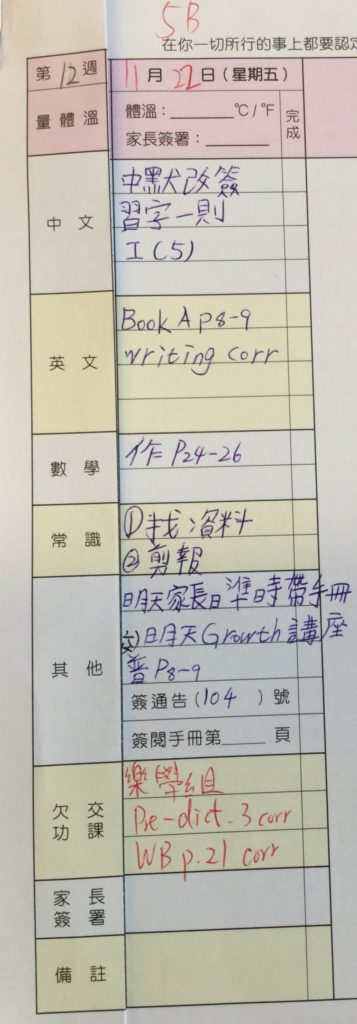 5B
在你一切所行的事上都要認定
第 12 週 11 月 22 日 (星期五)
量體溫 體溫：______ °C / °F 完成
家長簽署：______
中文 中默改簽
習字一則
I (5)
英文 Book A p8-9
writing corr
數學 作 P24-26
常識 ①找資料
②剪報
其他 明天家長日準時帶手冊
交) 明天Growth講座
普P8-9
簽通告 (104 ) 號
簽閱手冊第____ 頁
欠交功課 樂學組
Pre-dict. 3 corr
WB p.21 corr
家長簽署
備註